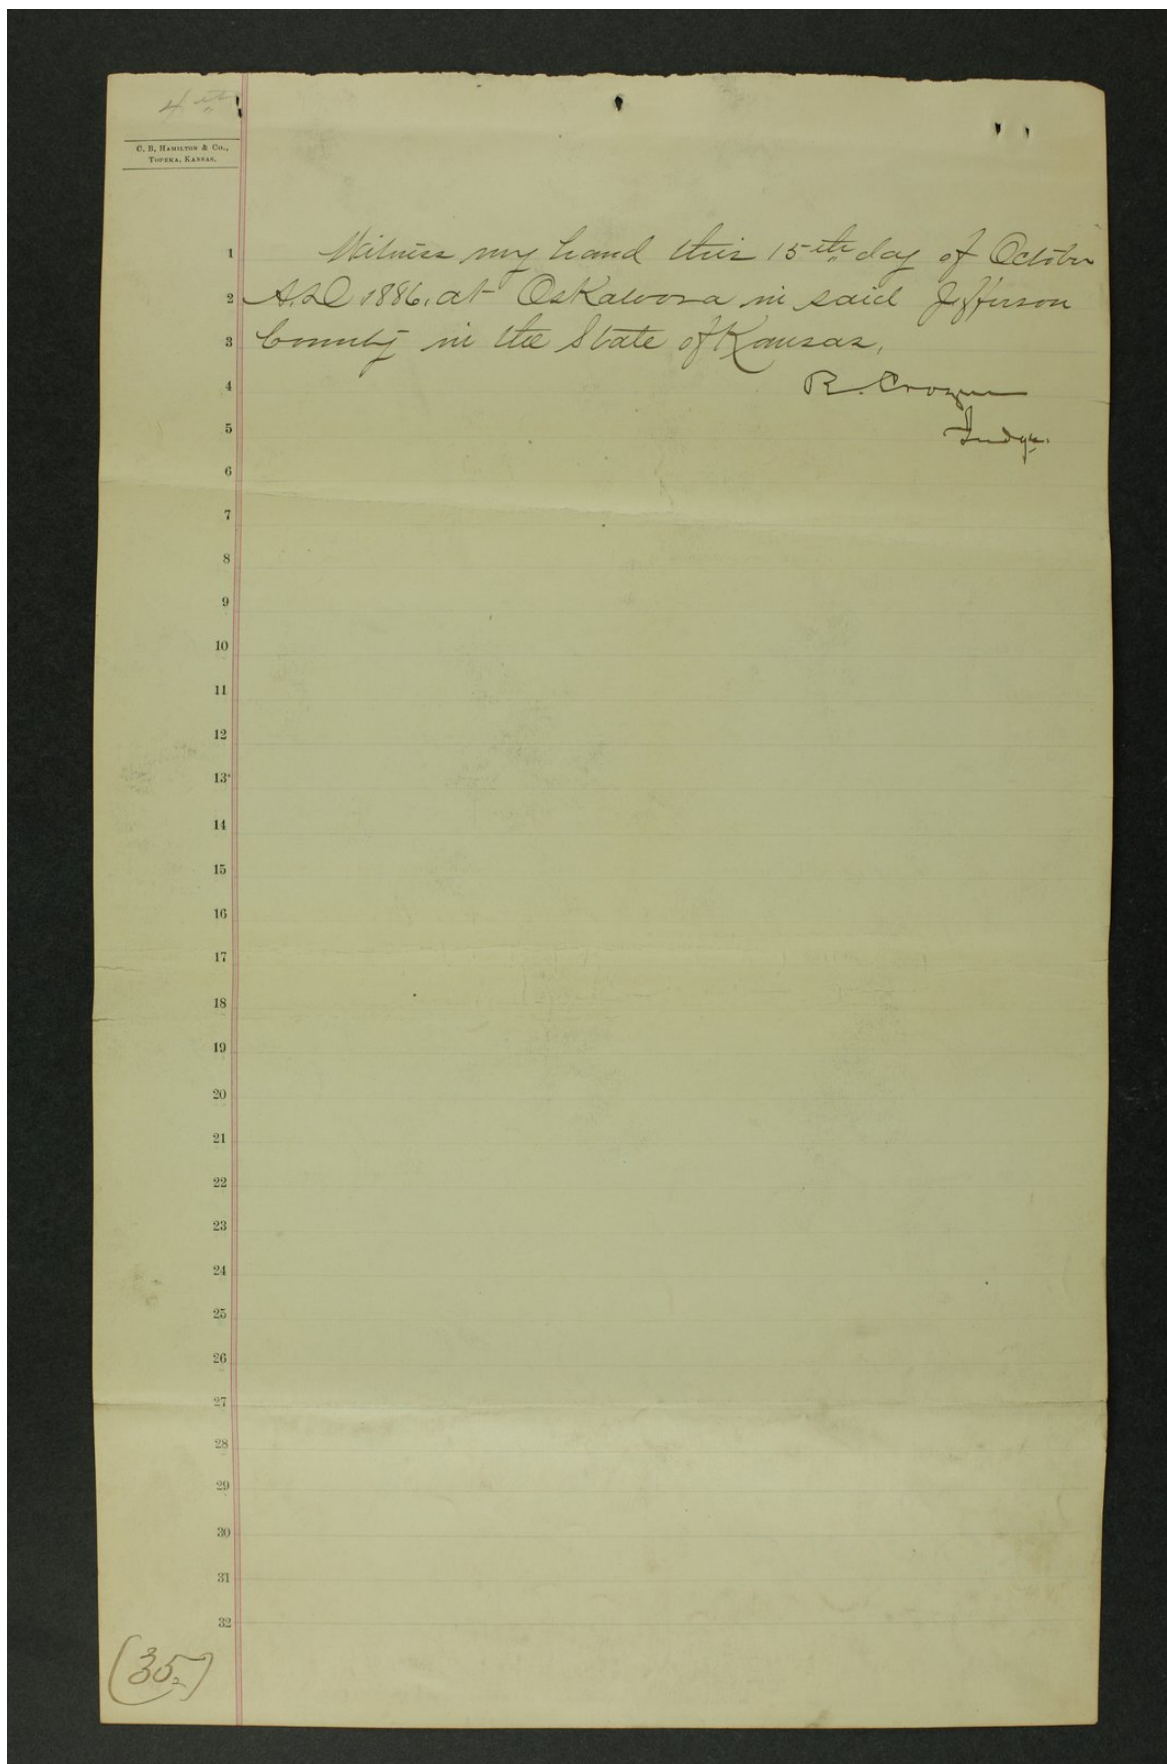 4th
C. B. HAMILTON & CO.,
TOPEKA, KANSAS.
1 Witness my hand this 15th day of October
2 A.D. 1886. at Oskaloosa in said Jefferson
3 County in the State of Kansas.
4 R. Crozier
5 Judge.
6
7
8
9
10
11
12
13
14
15
16
17
18
19
20
21
22
23
24
25
26
27
28
29
30
31
32
(35)